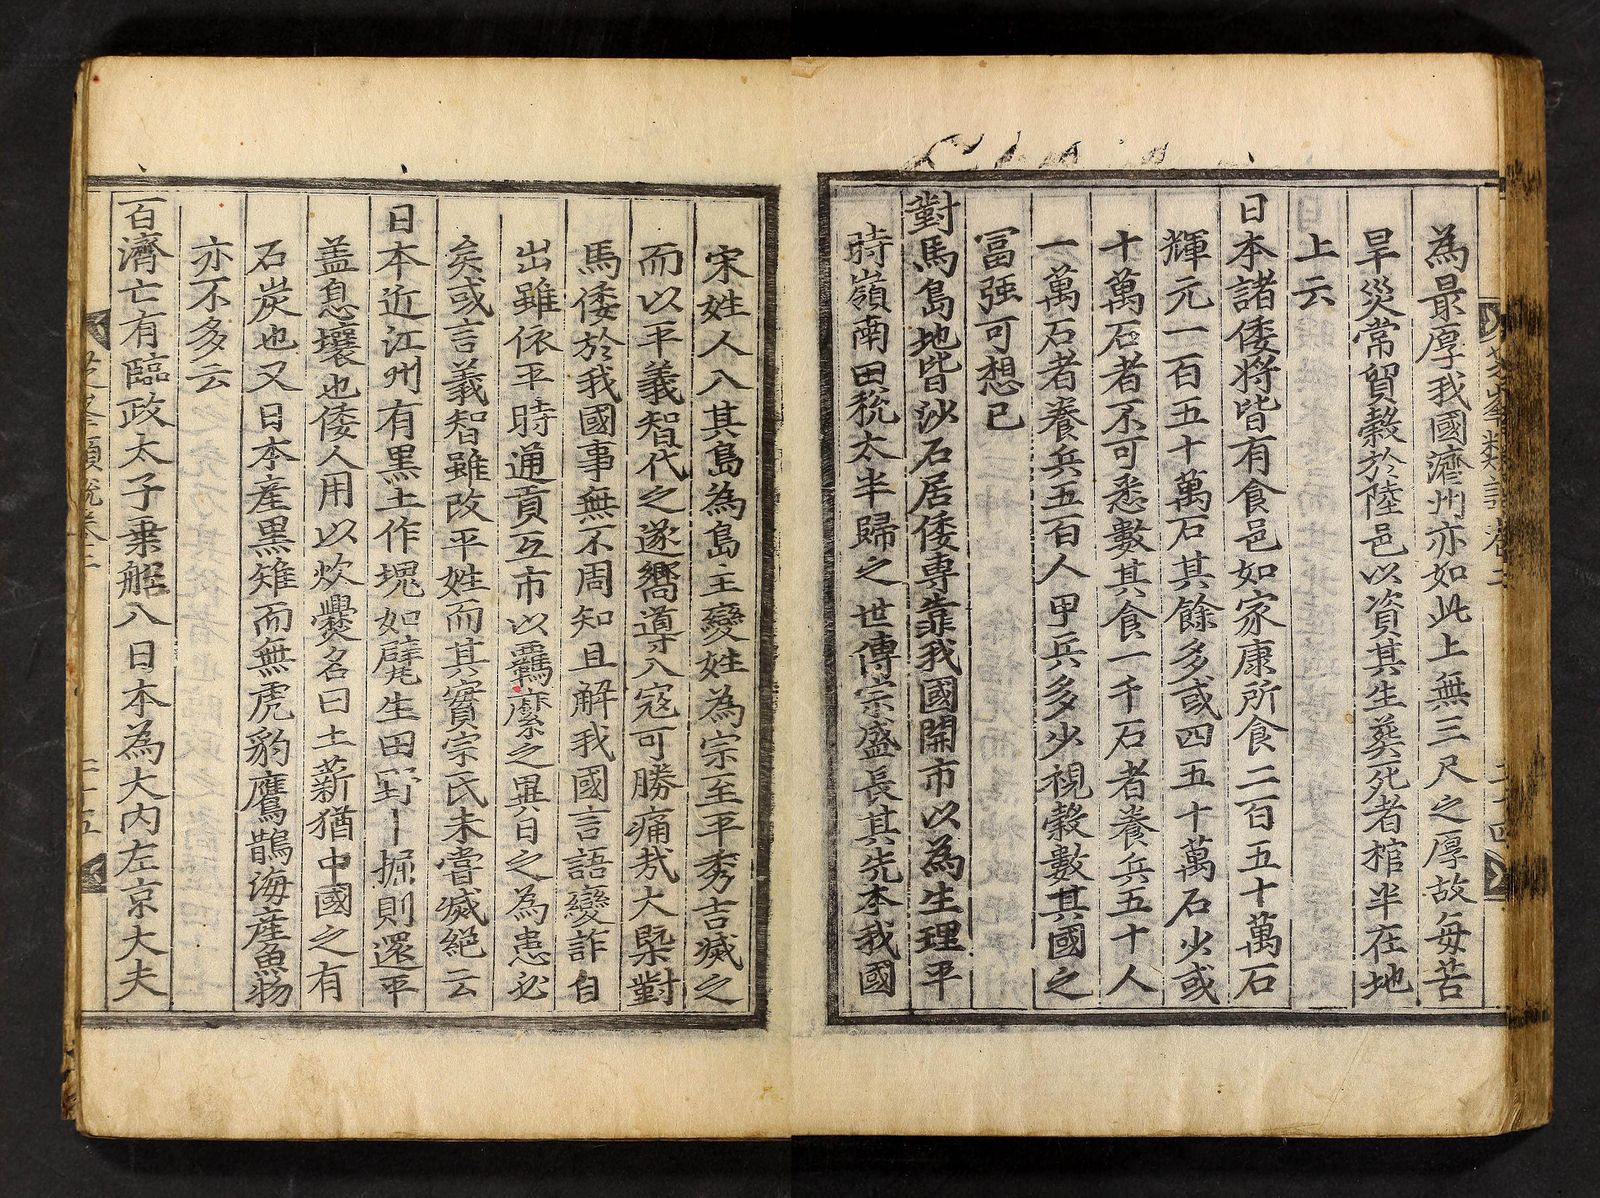 為最厚我國濟州亦如此上無三尺之厚故每苦
旱災常貿穀於陸邑以資其生葬死者棺半在地
上云
日本諸倭將皆有食邑如家康所食二百五十萬石
輝元一百五十萬石其餘多或四五十萬石少或
十萬石者不可悉數其食一千石者養兵五十人
一萬石者養兵五百人甲兵多少視穀數其國之
冨强可想已
對馬島地皆沙石居倭專靠我國開市以為生理平
時嶺南田稅太半歸之世傳宗盛長其先本我國
宋姓人入其島為島主變姓為宗至平秀吉滅之
而以平義智代之遂嚮導入寇可勝痛哉大槩對
馬倭於我國事無不周知且解我國言語變詐自
出雖依平時通貢互市以羈縻之異日之為患必
矣或言義智雖改平姓而其實宗氏未嘗滅絕云
日本近江州有黑土作塊如甓生田野中掘則還平
盖息壤也倭人用以炊爨名曰土薪猶中國之有
石炭也又日本產黑雉而無虎豹鷹鶻海產魚物
亦不多云
百濟亡有臨政太子乗船入日本為大內左京大夫
芝峯類說卷二
二十四
芝峯類說卷二
二十五